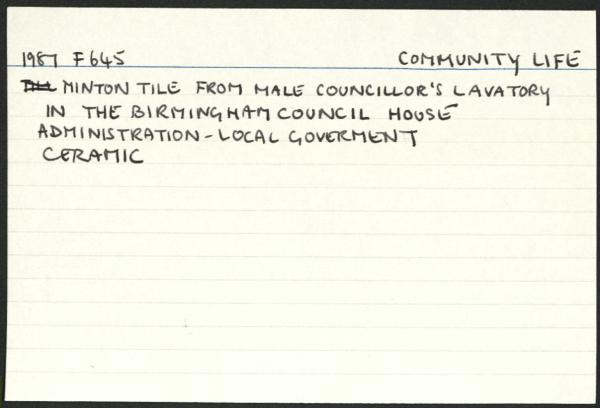 1987 F645 COMMUNITY LIFE
MINTON TILE FROM MALE COUNCILLOR'S LAVATORY
IN THE BIRMINGHAM COUNCIL HOUSE
ADMINISTRATION - LOCAL GOVERMENT
CERAMIC